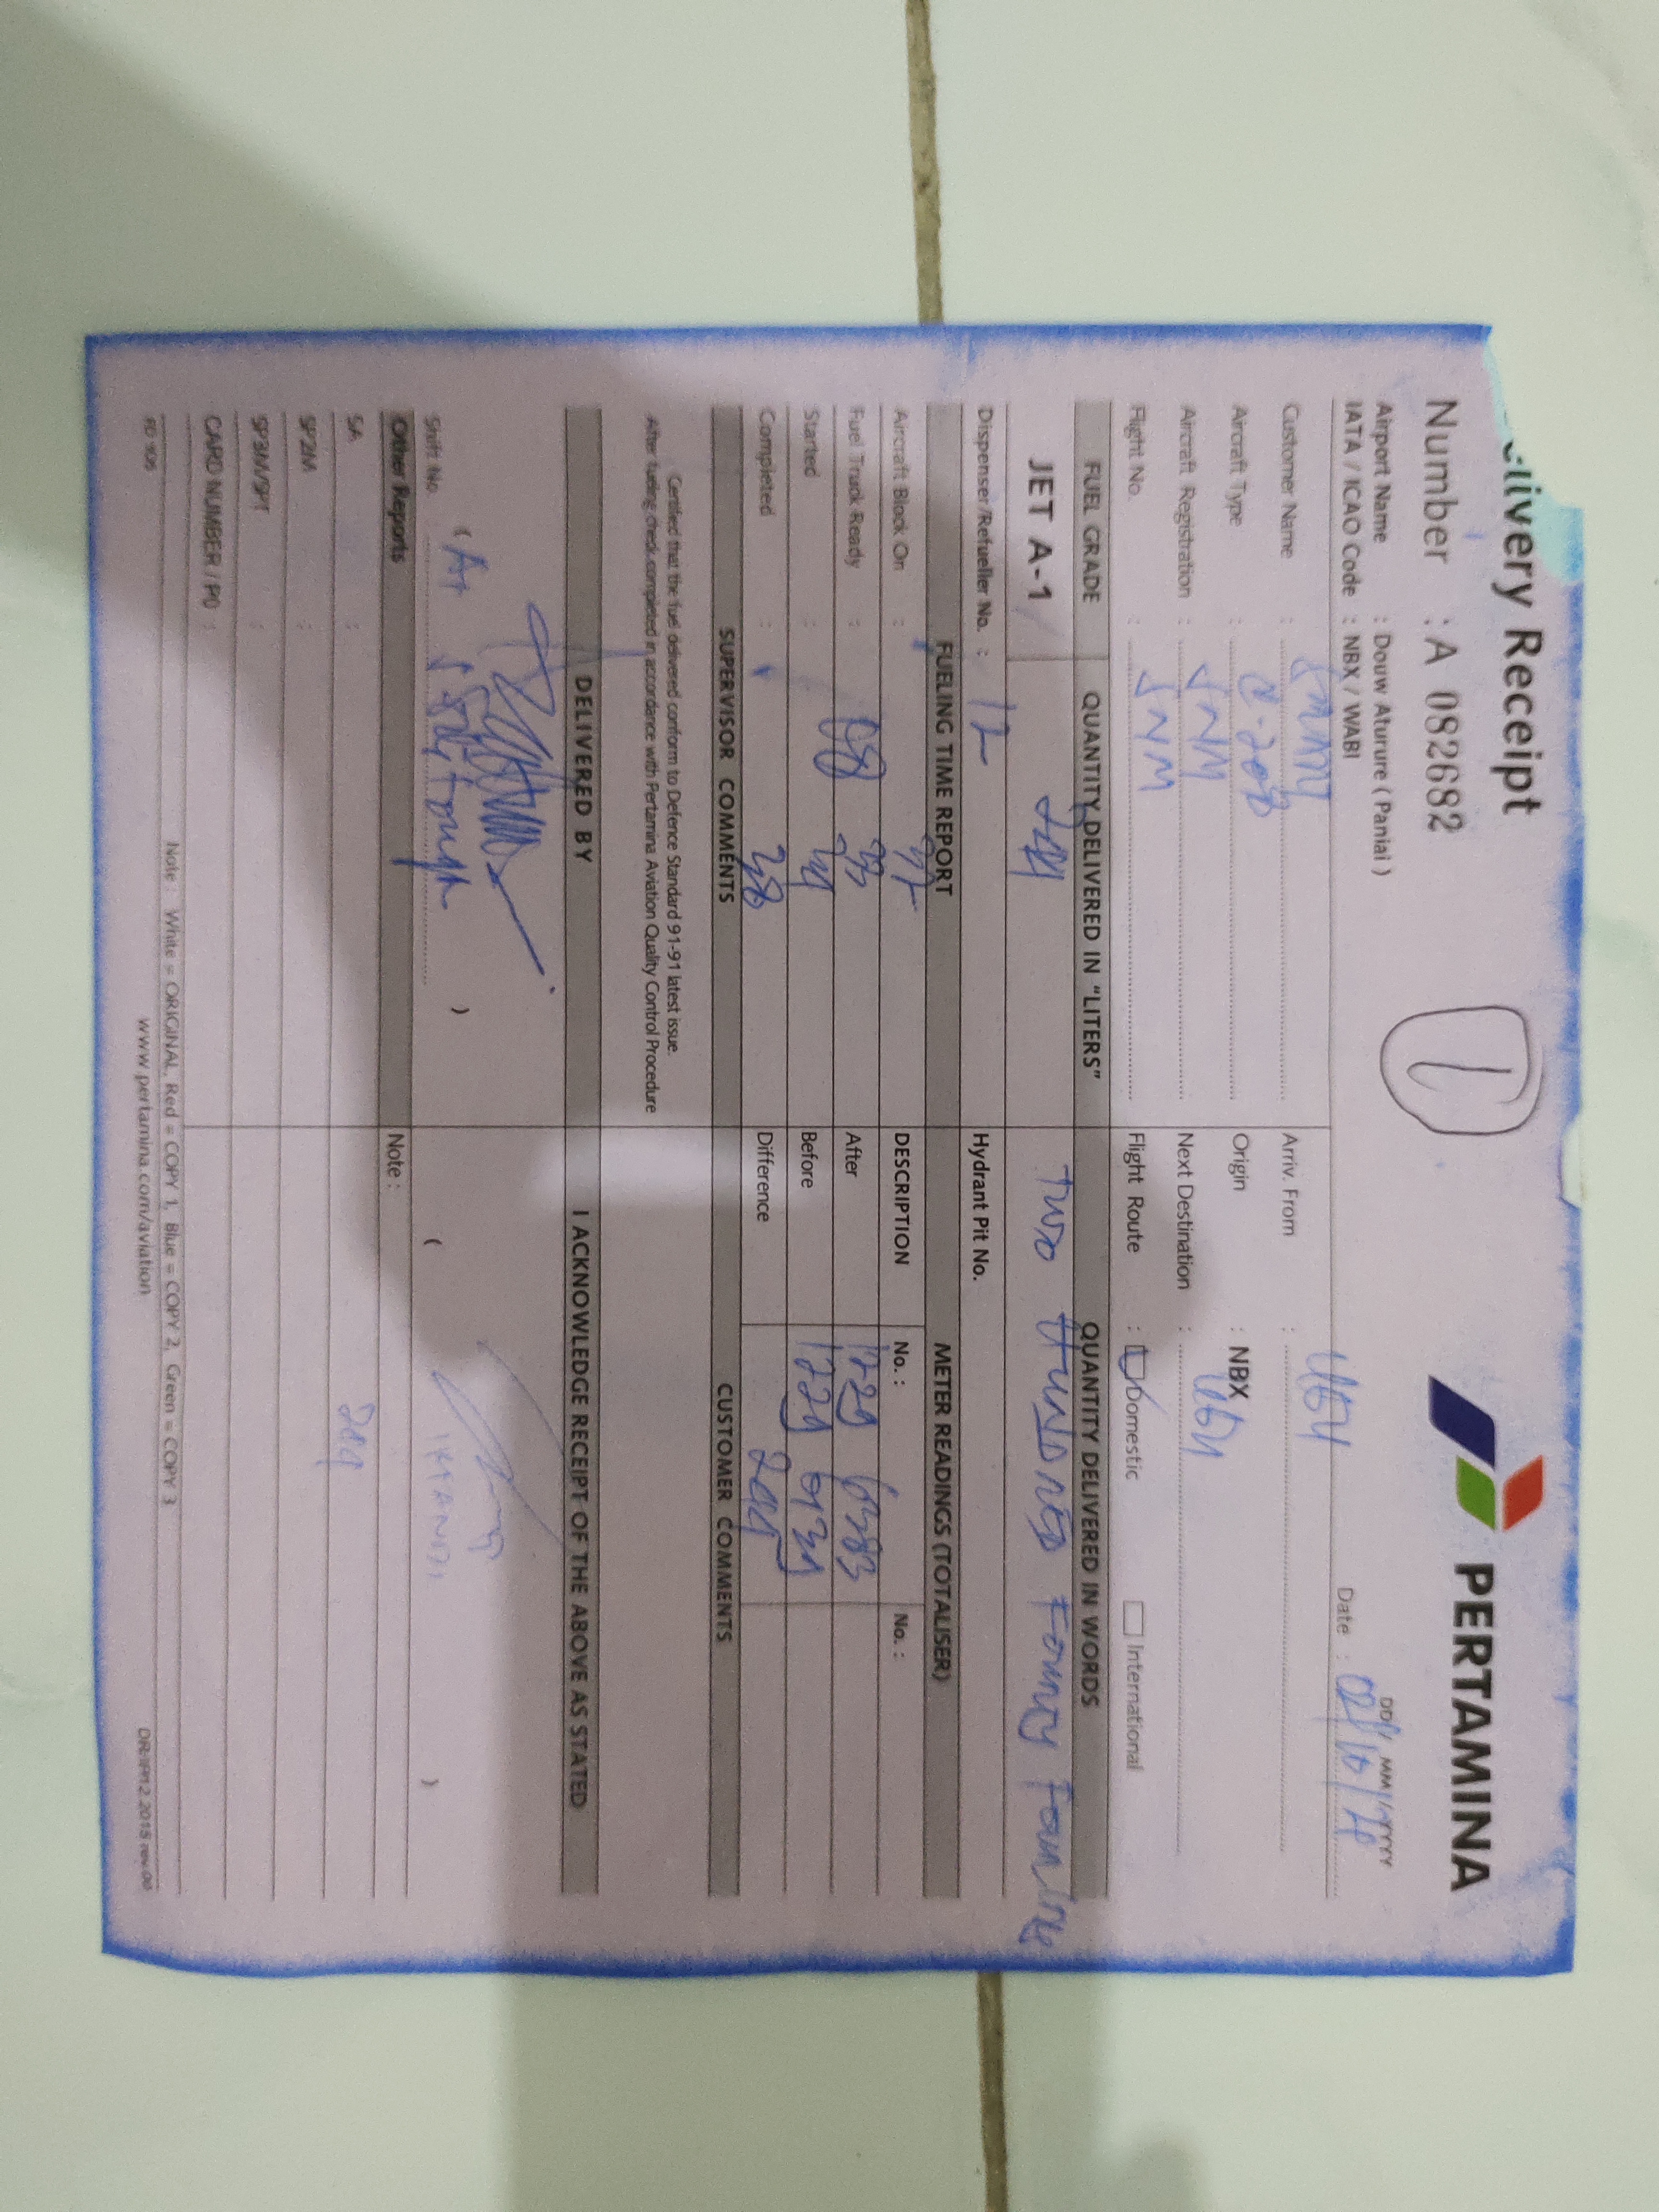 livery Receipt
PERTAMINA
Number : A 082682
1
Airport Name : Douw Aturure ( Paniai )
IATA / ICAO Code : NBX / WABI
DD/ MM/YYYY
Date : 02/10/
Customer Name :
Arriv. From :
Aircraft Type : C-208
Origin : NBX
Aircraft Registration : SNM
Next Destination :
Flight No. : SNM
Flight Route : Domestic International
FUEL GRADE QUANTITY DELIVERED IN "LITERS" QUANTITY DELIVERED IN WORDS
JET A-1 244 TWO HUNDRED
Dispenser/Refueller No. : 12
Hydrant Pit No.
FUELING TIME REPORT METER READINGS (TOTALISER)
Aircraft Block On : 32
DESCRIPTION No. : No. :
Fuel Truck Ready : 08 33
After
Started : 34
Before
Completed : 38
Difference 244
SUPERVISOR COMMENTS CUSTOMER COMMENTS
Certified that the fuel delivered conform to Defence Standard 91-91 latest issue.
After fueling check completed in accordance with Pertamina Aviation Quality Control Procedure
DELIVERED BY I ACKNOWLEDGE RECEIPT OF THE ABOVE AS STATED
Shift No. ( ) ( )
Other Reports Note :
SA : 244
SP2M :
SP3M/SPT :
CARD NUMBER / PO :
Note : White = ORIGINAL, Red = COPY 1, Blue = COPY 2, Green = COPY 3
www.pertamina.com/aviation